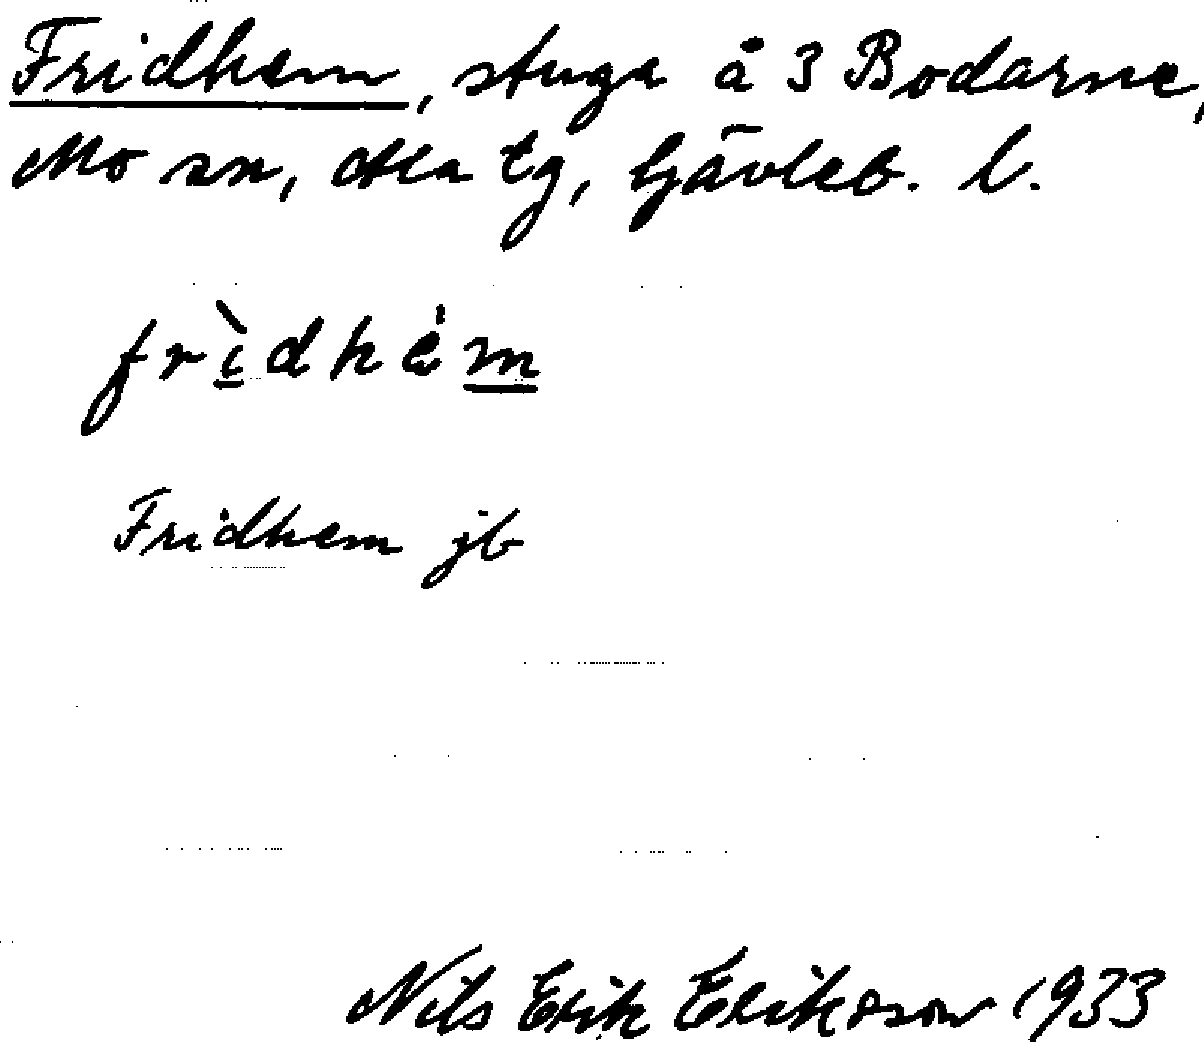 Fridhem, stuga å 3 Bodarne,
Mo sn, Ala tg, Gävleb. l.
frìdhèm
Fridhem jb
Nils Erik Erikson 1933